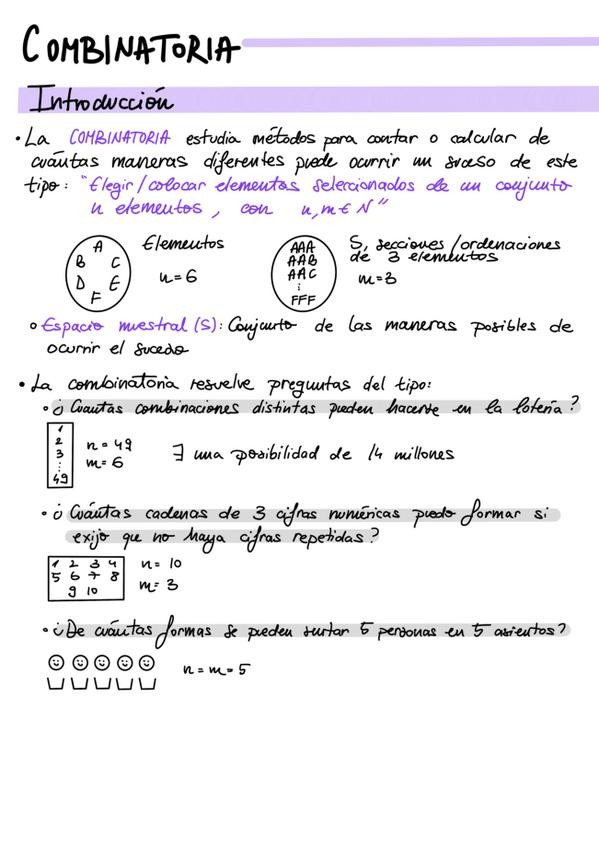 COMBINATORIA
Introducción
• La COMBINATORIA estudia métodos para contar o calcular de
cuántas maneras diferentes puede ocurrir un suceso de este
tipo: "Elegir/colocar elementos seleccionados de un conjunto
n elementos, con n,m ∈ N"
A
B C
D E
F
Elementos
n=6
AAA
AAB
AAC
⋮
FFF
S, secciones/ordenaciones
de 3 elementos
m=3
○ Espacio muestral (S): Conjunto de las maneras posibles de
ocurrir el sucedo
• La combinatoria resuelve preguntas del tipo:
• ¿Cuantas combinaciones distintas pueden hacerse en la lotería?
1
2
3
⋮
49
n=49
m=6
∃ una posibilidad de 14 millones
• ¿Cuántas cadenas de 3 cifras numéricas puedo formar si
exijo que no haya cifras repetidas?
1 2 3 4
5 6 7 8
9 10
n=10
m=3
• ¿De cuántas formas se pueden sentar 5 personas en 5 asientos?
n=m=5